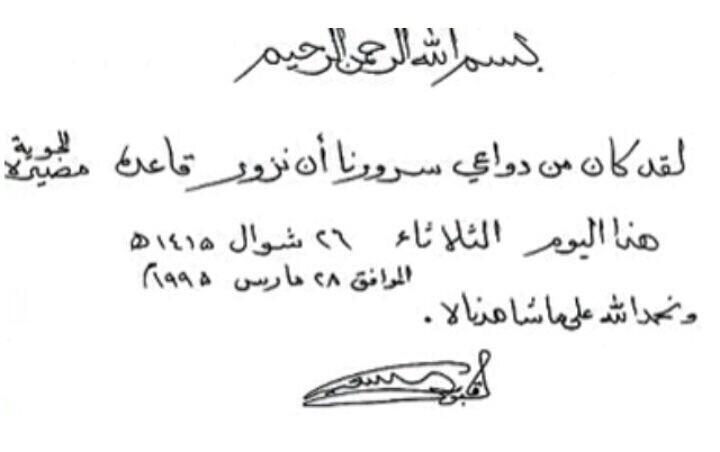 بسم الله الرحمن الرحيم
لقد كان من دواعي سرورنا أن نزور قاعدة مصيرة الجوية
هذا اليوم الثلاثاء ٢٦ شوال ١٤١٥ ه
الموافق ٢٨ مارس ١٩٩٥م
ونحمد الله على ما شاهدناه .
قابوس